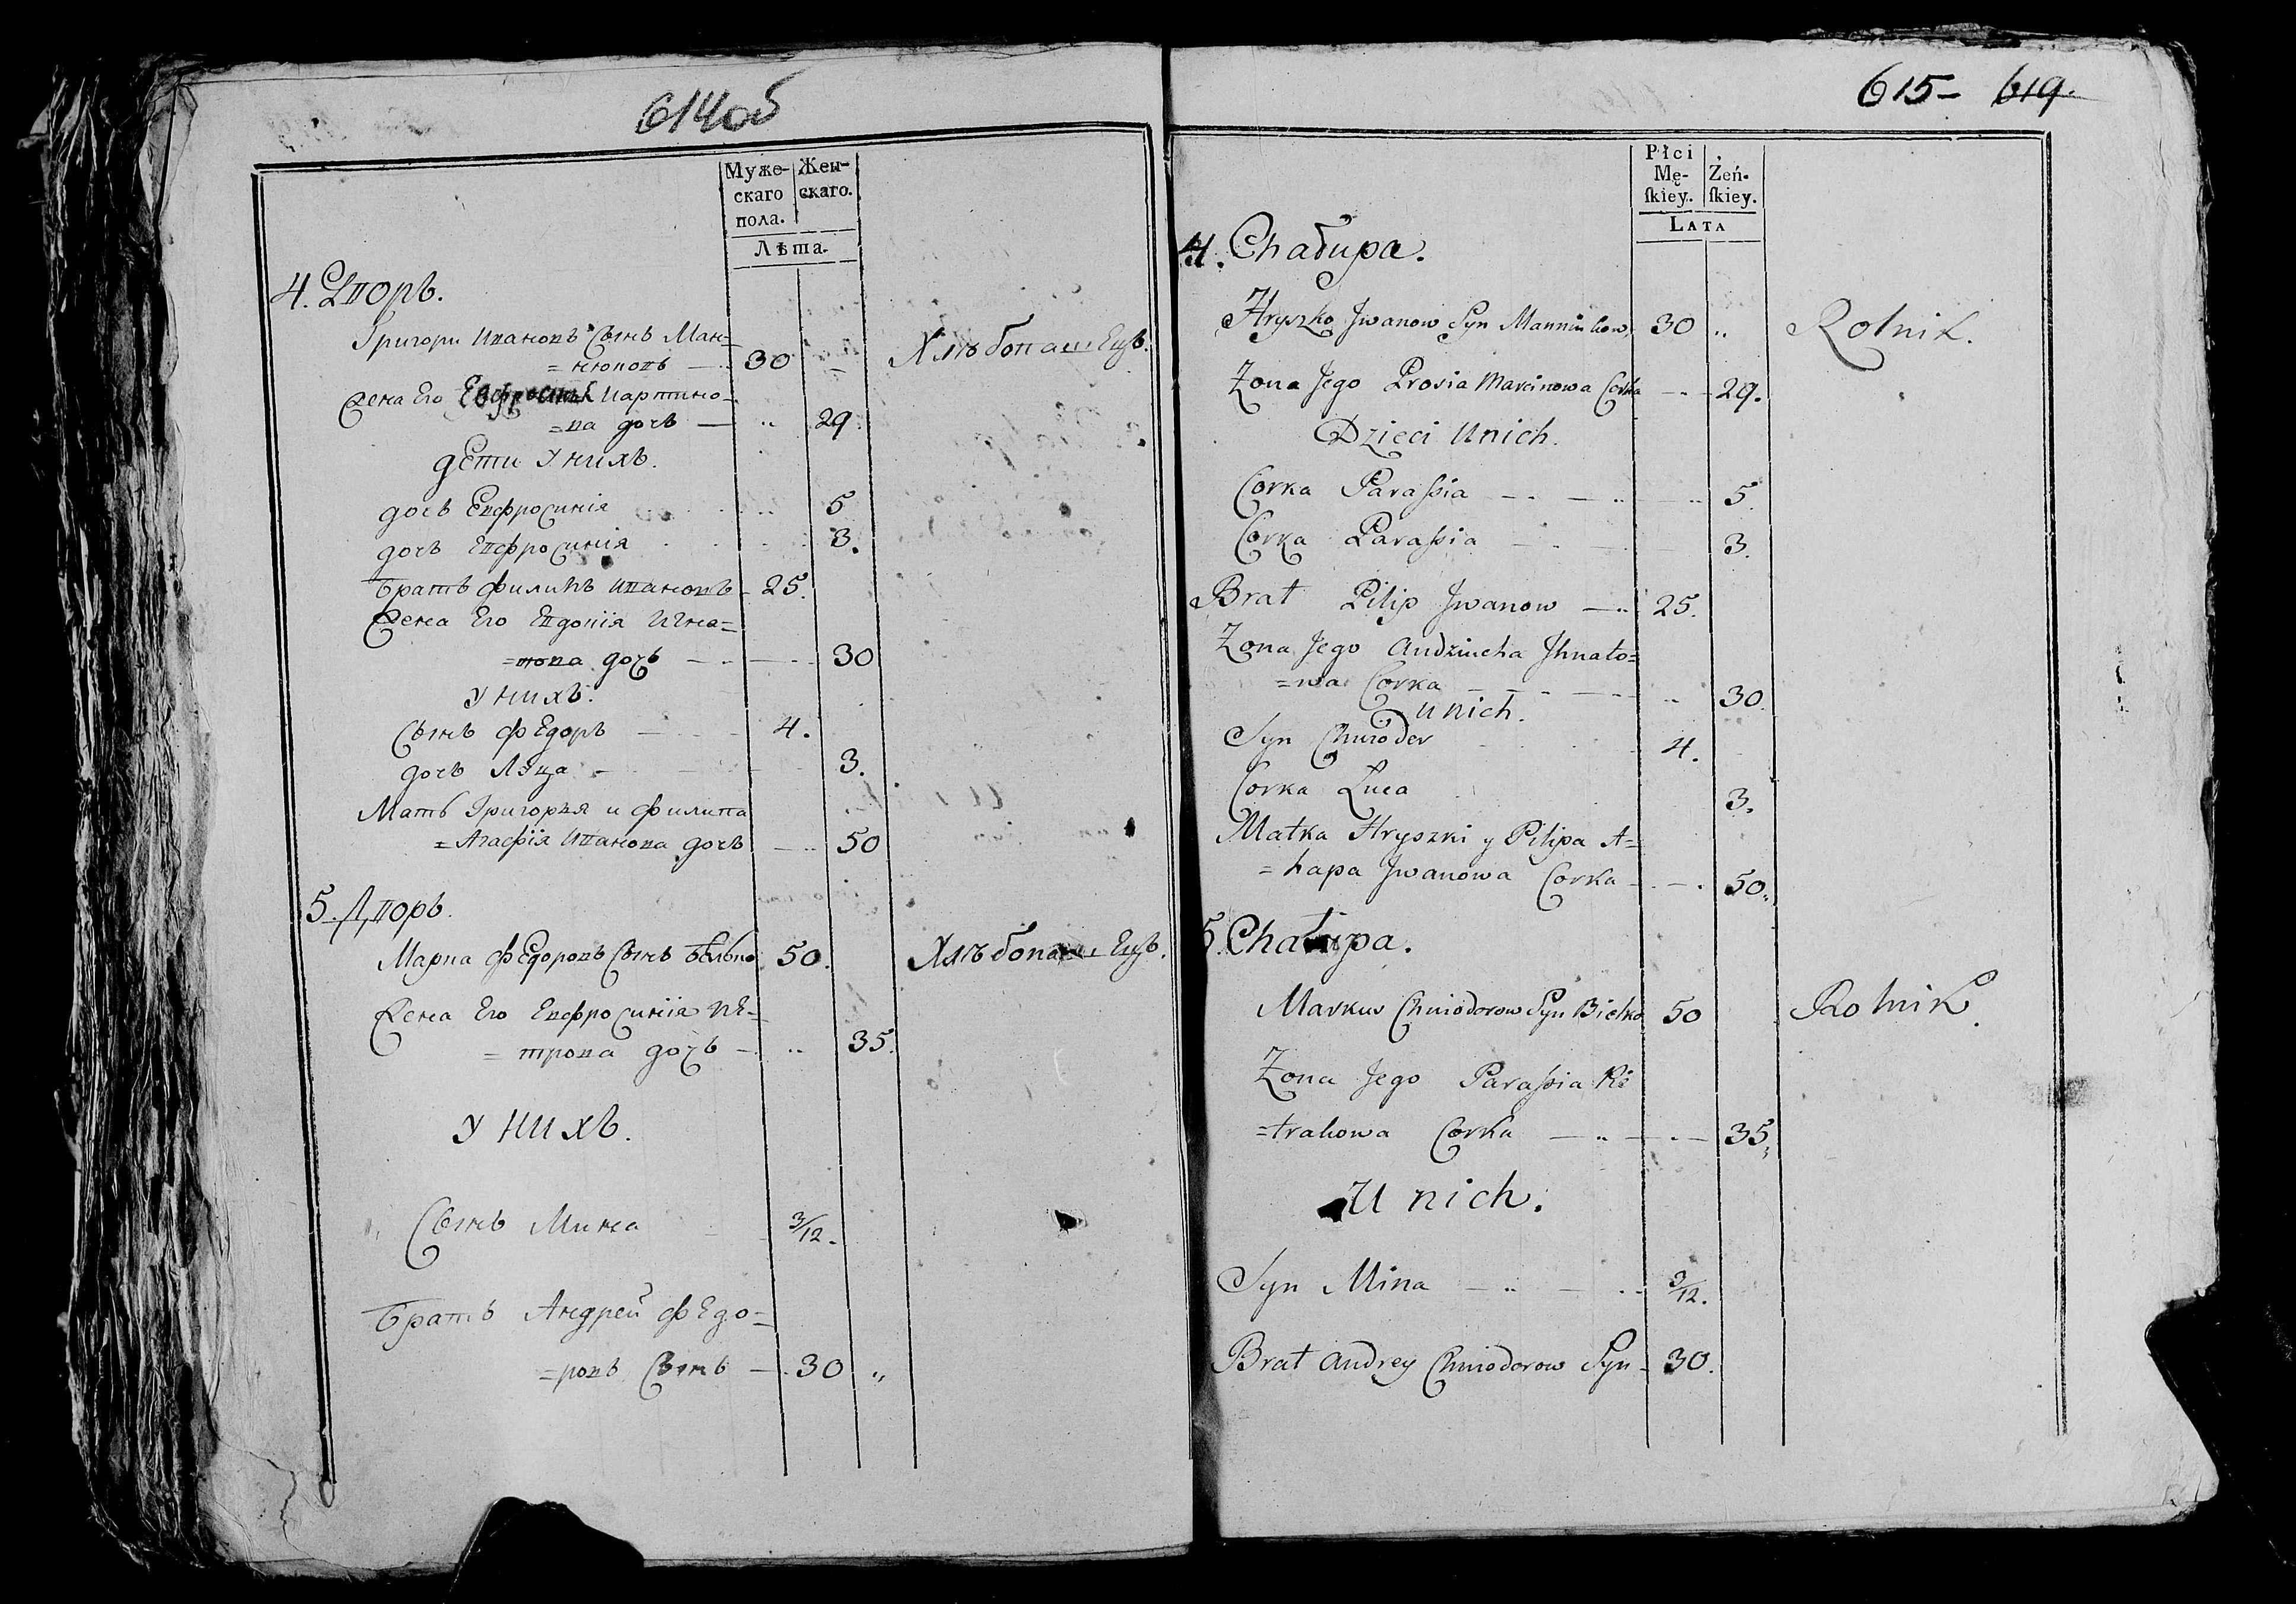 614об
Муже-
скаго
пола.
Жен-
скаго.
Лѣта.
4. Дворъ.
Григори Ивановъ Сынъ Ман-
=нюковъ — 30
Жена Его Евфросинія Мартино-
=ва дочь — 29.
дети У нихъ.
дочь Евфросинія 5
дочь Евфросинія 3.
Братъ Филипъ Ивановъ - 25.
Жена Его Евдокія Игна=
=това дочь — 30
У нихъ.
Сынъ Федоръ — 4.
дочь Луца - 3.
Мать Григорья и Филипа
=Агафія Иванова дочь — 50
Хлѣбопашецъ.
5. Дворъ.
Марка Федоровъ Сынъ Белько 50.
Хлѣбопашецъ.
Жена Его Евфросинія Пе-
=трова дочь — 35.
У нихъ.
Сынъ Мина 3/12.
Братъ Андрей Федо=
=ровъ Сынъ — 30 „
615- 619.
Płci
Mę-
ſkiey.
Żeń-
ſkiey.
LATA
4. Chałupa.
Hryszko Jwanow Syn Manniukow 30 „ Rolnik.
Zona Jego Prosia Marcinowa Corka — 29.
Dzieci Unich.
Corka Paraſsia — 5.
Corka Paraſsia — 3.
Brat Pilip Jwanow — 25.
Zona Jego Audziucha Jhnato=
=wa Corka — 30.
unich.
Syn Chwioder 4.
Corka Luca 3.
Matka Hryszki y Pilipa A=
=hapa Jwanowa Corka — 50.
5. Chałupa.
Markus Chwiodorow Syn Bielko 50 Rolnik.
Zona Jego Paraſsia Pi
=trakowa Corka — 35,
U nich.
Syn Mina — 3/12.
Brat Andrey Chwiodorow Syn - 30.